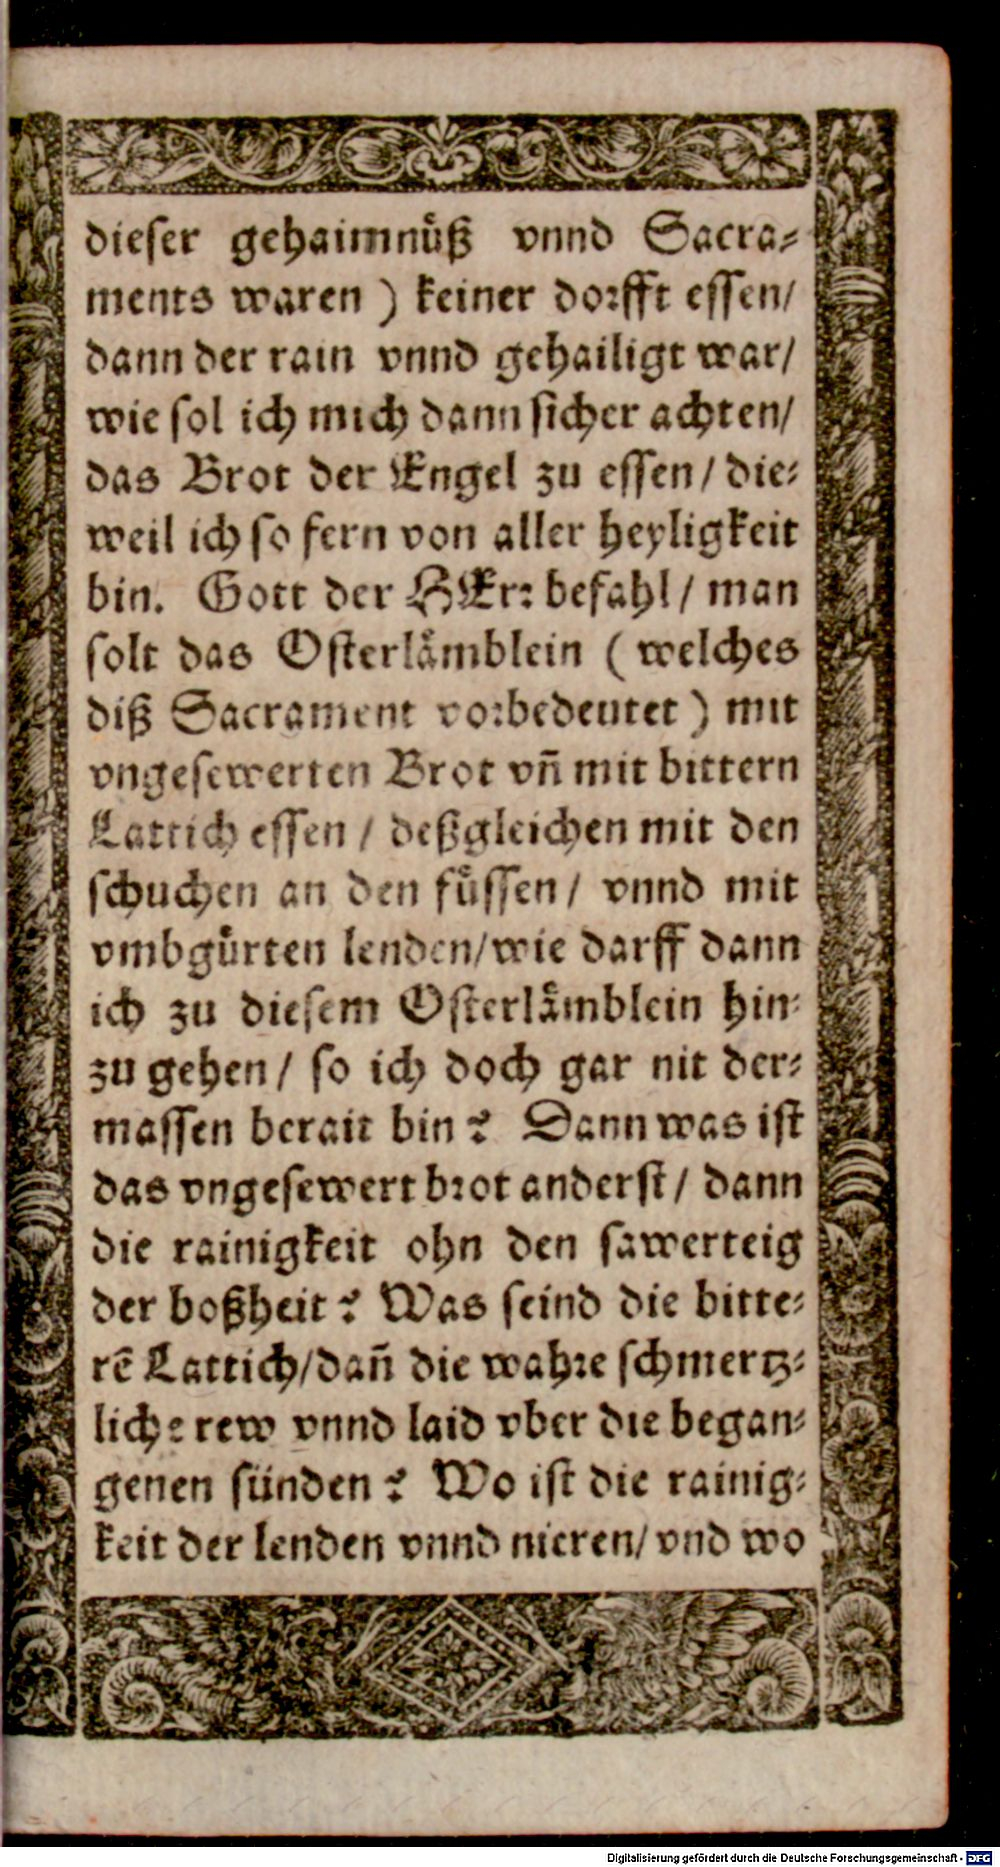 dieser gehaimnuͤß vnnd Sacra⸗
ments waren ) keiner dorfft essen/
dann der rain vnnd gehailigt war/
wie sol ich mich dann sicher achten/
das Brot der Engel zu essen / die⸗
weil ich so fern von aller heyligkeit
bin. Gott der HErr befahl / man
solt das Osterlaͤmblein ( welches
diß Sacrament vorbedeutet ) mit
vngesewerten Brot vñ mit bittern
Lattich essen / deßgleichen mit den
schuchen an den fuͤssen / vnnd mit
vmbguͤrten lenden/wie darff dann
ich zu diesem Osterlaͤmblein hin⸗
zu gehen / so ich doch gar nit der⸗
massen berait bin? Dann was ist
das vngesewert brot anderst / dann
die rainigkeit ohn den sawerteig
der boßheit? Was seind die bitte⸗
rẽ Lattich/dañ die wahre schmertz⸗
liche rew vnnd laid vber die began⸗
genen sünden? Wo ist die rainig⸗
keit der lenden vnnd nieren/ vnd wo
Digitalisierung gefördert durch die Deutsche Forschungsgemeinschaft - DFG